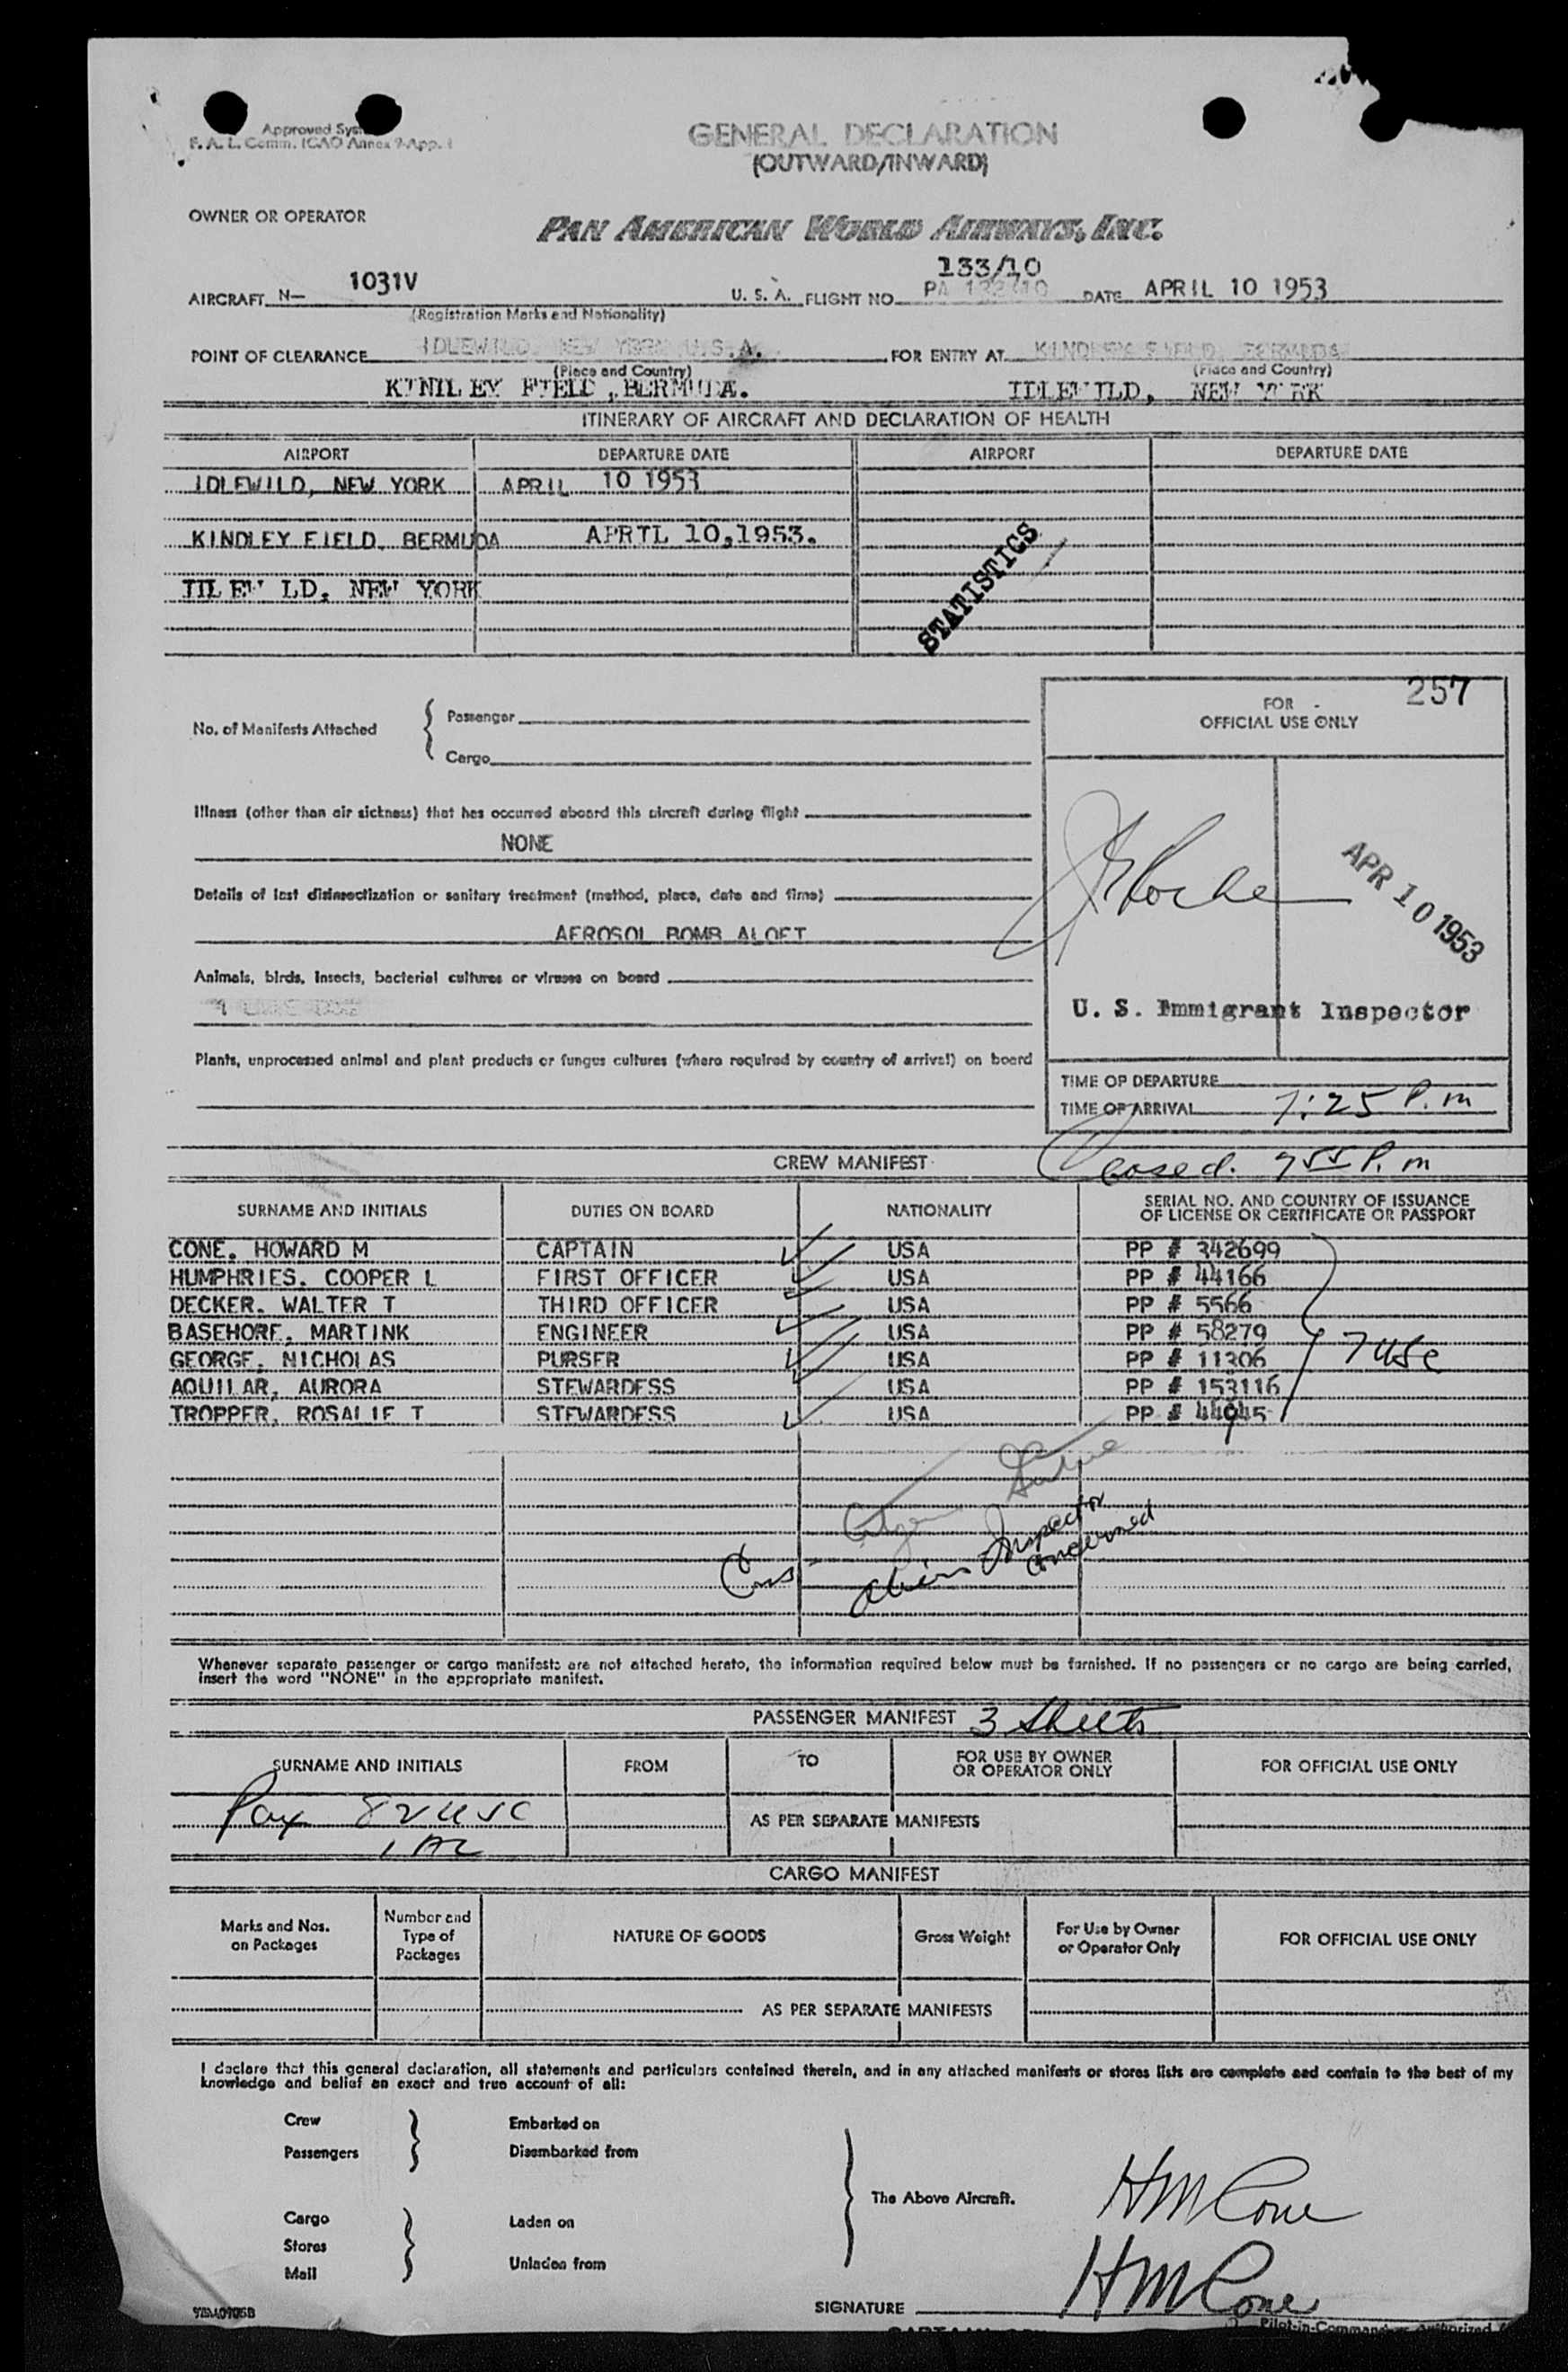 Approved Sys
F. A. L. Comm. ICAO Annex 9-App. 1
GENERAL DECLARATION
(OUTWARD/INWARD)
OWNER OR OPERATOR
PAN AMERICAN WORLD AIRWAYS, INC.
133/10
AIRCRAFT N- 1031V U. S. A. FLIGHT NO. PA 132/10 DATE APRIL 10 1953
(Registration Marks and Nationality)
POINT OF CLEARANCE IDLEWILD, NEW YORK U.S.A. FOR ENTRY AT KINDLEY FIELD, BERMUDA
(Place and Country) (Place and Country)
KINILEY FIELD ,BERMUDA. IDLEWILD, NEW YORK
ITINERARY OF AIRCRAFT AND DECLARATION OF HEALTH
AIRPORT DEPARTURE DATE AIRPORT DEPARTURE DATE
IDLEWILD, NEW YORK APRIL 10 1953
KINDLEY FIELD, BERMUDA APRIL 10,1953.
IDLEW LD, NEW YORK
STATISTICS
257
FOR
OFFICIAL USE ONLY
No. of Manifests Attached
Passenger
Cargo
Illness (other than air sickness) that has occurred aboard this aircraft during flight
NONE
Details of last disinsectization or sanitary treatment (method, place, date and time)
AEROSOL BOMB ALOFT
Animals, birds, insects, bacterial cultures or viruses on board
Plants, unprocessed animal and plant products or fungus cultures (where required by country of arrival) on board
APR 10 1953
U. S. Immigrant Inspector
TIME OF DEPARTURE
TIME OF ARRIVAL 7:25 P. m
CREW MANIFEST
Closed. 755 P. m
SURNAME AND INITIALS DUTIES ON BOARD NATIONALITY SERIAL NO. AND COUNTRY OF ISSUANCE OF LICENSE OR CERTIFICATE OR PASSPORT
CONE, HOWARD M CAPTAIN USA PP # 342699
HUMPHRIES, COOPER L FIRST OFFICER USA PP # 44166
DECKER, WALTER T THIRD OFFICER USA PP # 5566
BASEHORE, MARTINK ENGINEER USA PP # 58279
GEORGE, NICHOLAS PURSER USA PP # 11306
AQUILAR, AURORA STEWARDESS USA PP # 153116
TROPPER, ROSALIE T STEWARDESS USA PP # 44945
7 USC
Inspector
Concerned
Whenever separate passenger or cargo manifests are not attached hereto, the information required below must be furnished. If no passengers or no cargo are being carried,
insert the word "NONE" in the appropriate manifest.
PASSENGER MANIFEST 3 Sheets
SURNAME AND INITIALS FROM TO FOR USE BY OWNER OR OPERATOR ONLY FOR OFFICIAL USE ONLY
Pax 82 USC
AS PER SEPARATE MANIFESTS
CARGO MANIFEST
Marks and Nos. on Packages Number and Type of Packages NATURE OF GOODS Gross Weight For Use by Owner or Operator Only FOR OFFICIAL USE ONLY
AS PER SEPARATE MANIFESTS
I declare that this general declaration, all statements and particulars contained therein, and in any attached manifests or stores lists are complete and contain to the best of my
knowledge and belief an exact and true account of all:
Crew
Passengers
Embarked on
Disembarked from
Cargo
Stores
Mail
Laden on
Unladen from
The Above Aircraft.
HM Cone
SIGNATURE HM Cone
Pilot-in-Command or Authorized